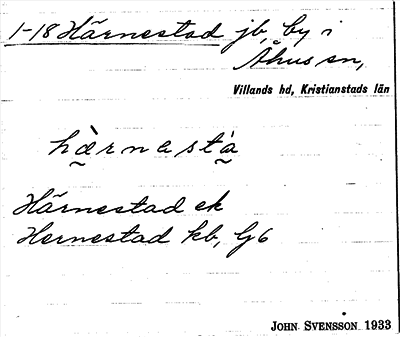 1-18 Härnestad jb, by i
Åhus sn,
Villands hd, Kristianstads län
hæ̀rnestà
Härnestad ek
Hernestad kb, Gj6
JOHN SVENSSON 1933